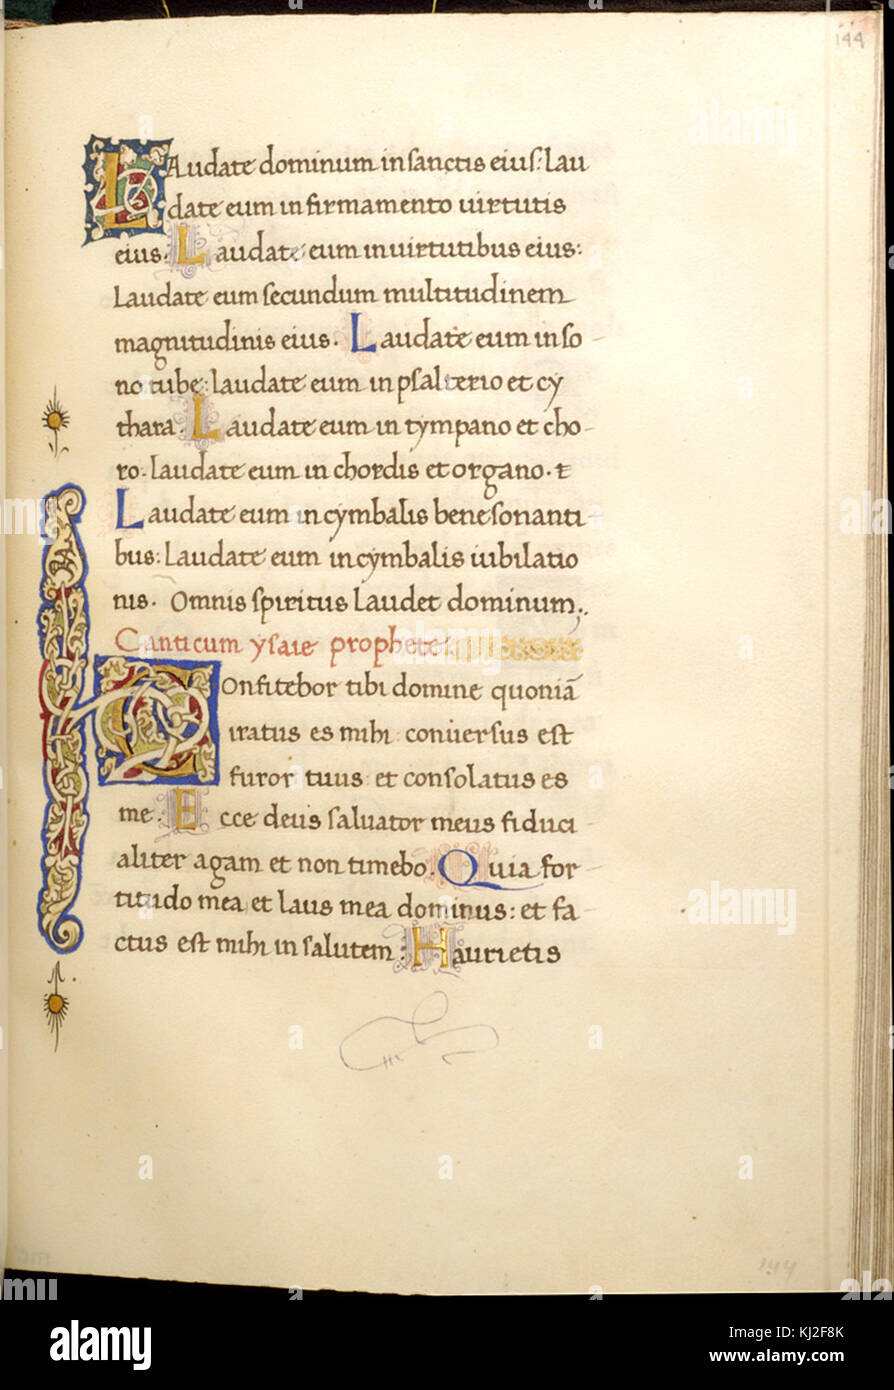 144
Laudate dominum in sanctis eius: lau
date eum in firmamento uirtutis
eius. Laudate eum in uirtutibus eius:
laudate eum secundum multitudinem
magnitudinis eius. Laudate eum in so
no tube: laudate eum in psalterio et cy
thara. Laudate eum in tympano et cho-
ro: laudate eum in chordis et organo.
Laudate eum in cymbalis benesonanti
bus: laudate eum in cymbalis iubilatio
nis. Omnis spiritus laudet dominum.
Canticum ysaie prophete.
Confitebor tibi domine quoniā
iratus es mihi conuersus est
furor tuus et consolatus es
me. Ecce deus saluator meus fiduci
aliter agam et non timebo. Quia for
titudo mea et laus mea dominus: et fa
ctus est mihi in salutem: Haurietis
144
alamy
Image ID: KJ2F8K
www.alamy.com